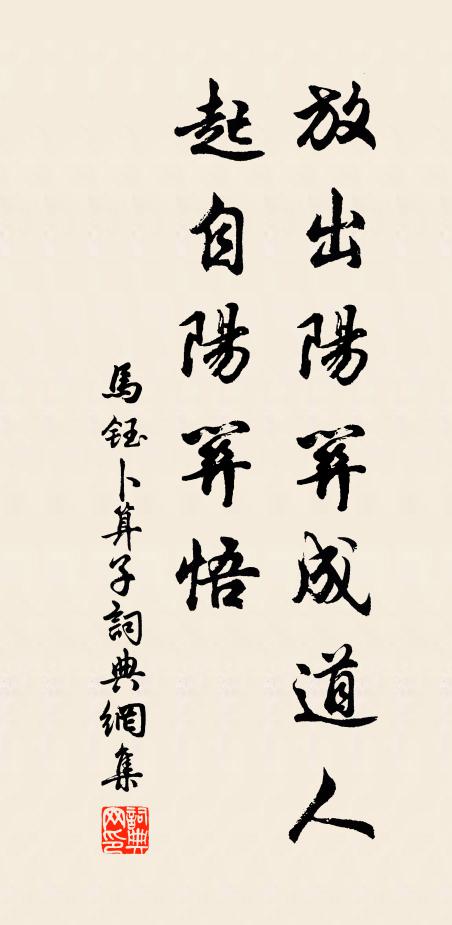 放出陽筭成道人
起自陽筭悟
馬鈺卜算子詞典網集
詞典网印